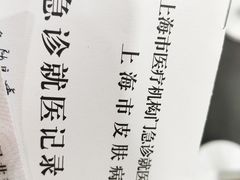 上海市医疗机构门急诊就医
上海市皮肤病
急诊就医记录